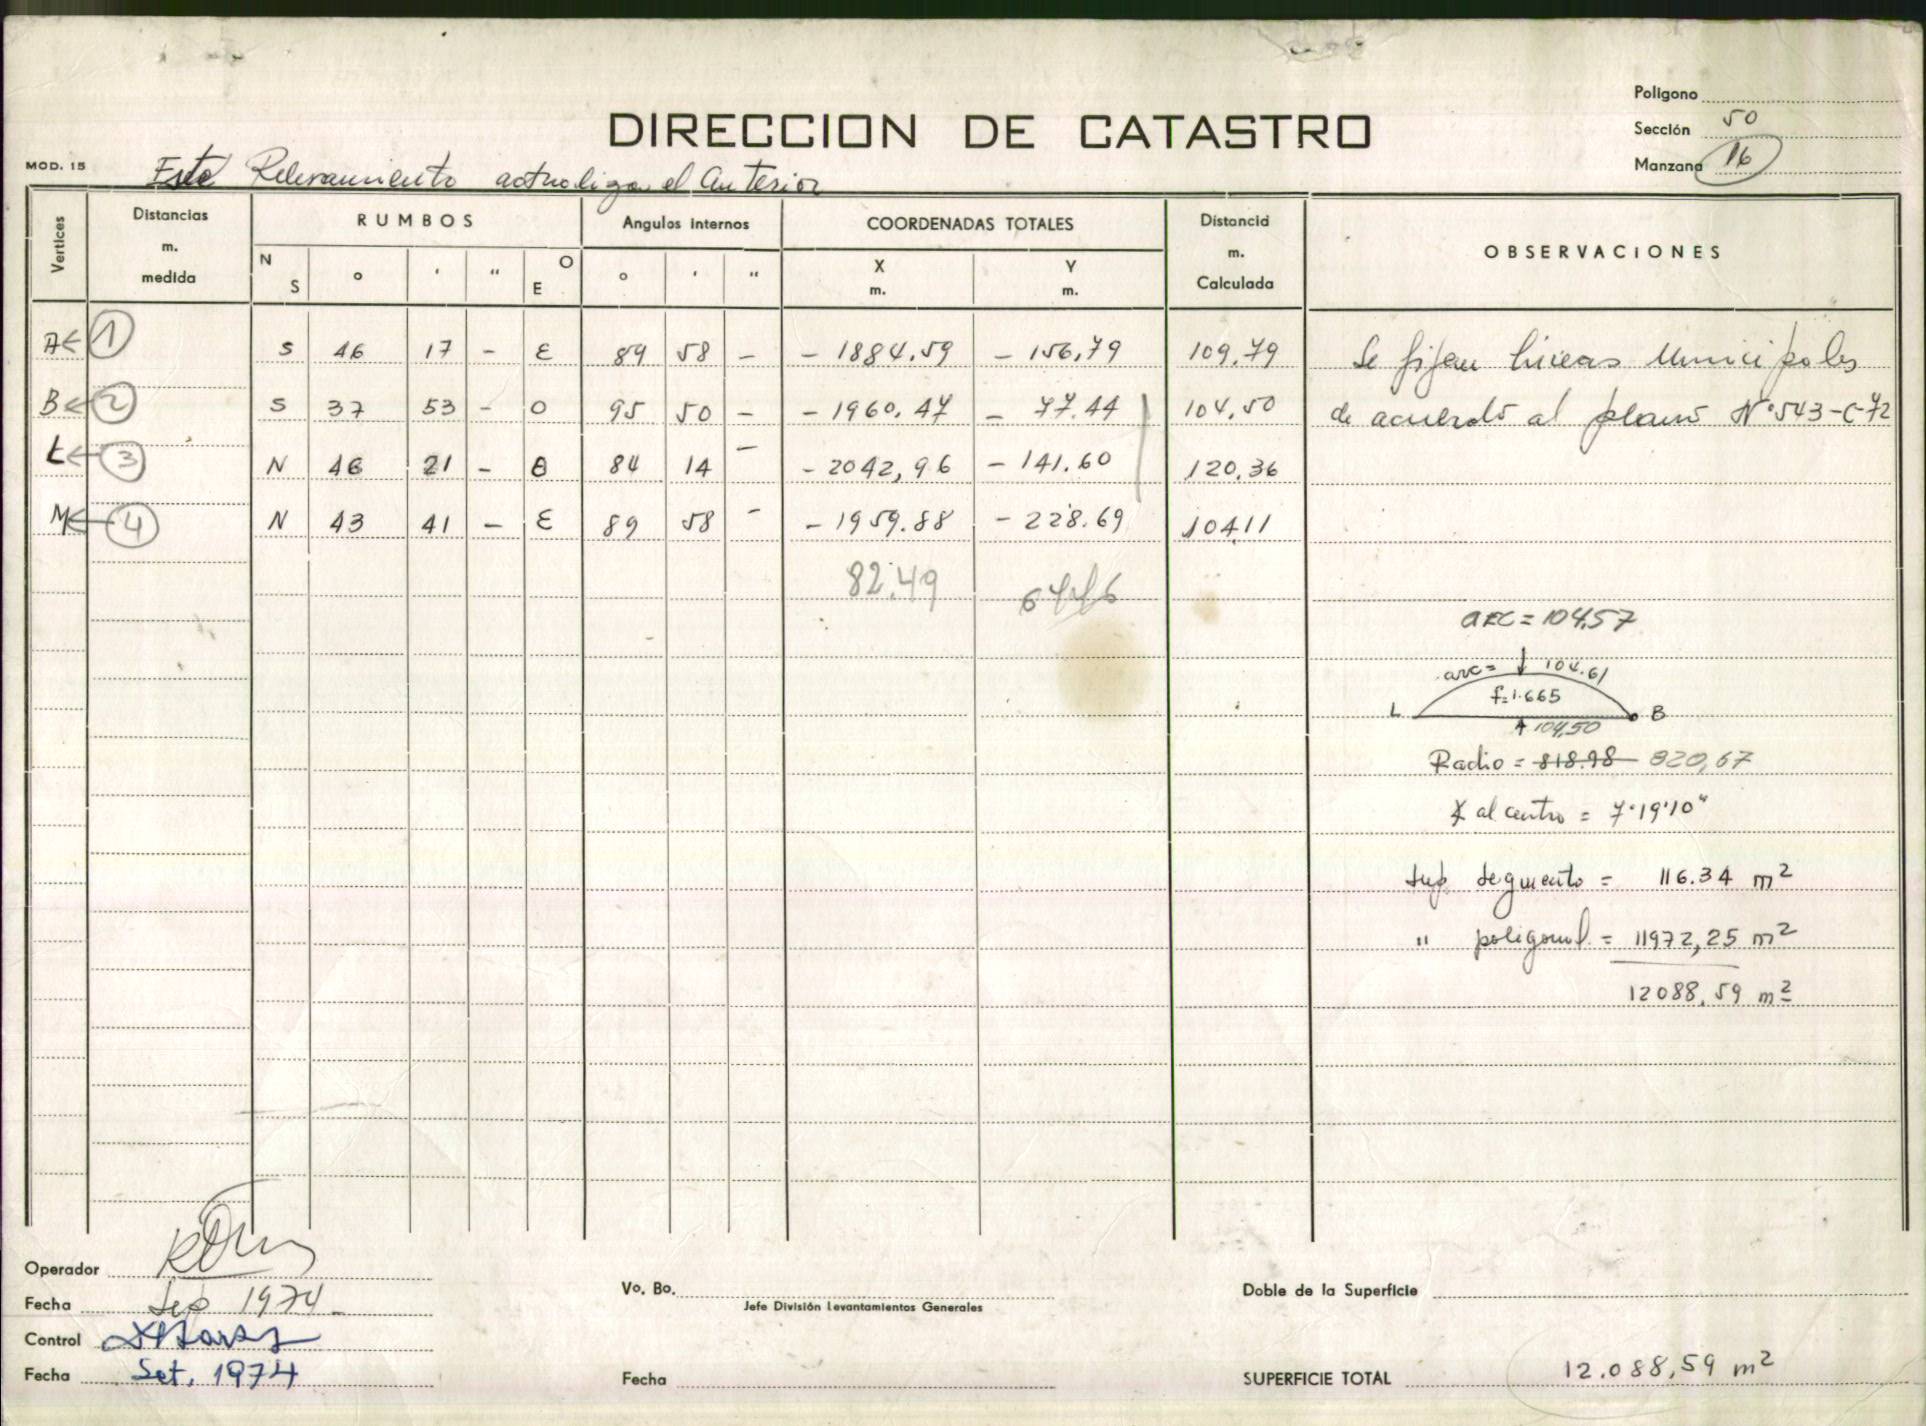 Poligono
DIRECCION DE CATASTRO
Sección 50
Manzana 16
MOD. 15
Este Relevamiento actualiza el Anterior
Vertices
Distancias m. medida
RUMBOS
Angulos internos
COORDENADAS TOTALES
Distancia m. Calculada
OBSERVACIONES
N S ° ' " O E ° ' " X m. Y m.
A ← 1 S 46 17 - E 89 58 - - 1884.59 - 156,79 109.79 Se fijan lineas Municipales
B ← 2 S 37 53 - O 95 50 - - 1960.47 - 77.44 104.50 de acuerdo al plano N° 543-C-72
L ← 3 N 46 21 - O 84 14 - - 2042,96 - 141.60 120.36
M ← 4 N 43 41 - E 89 58 - - 1959.88 - 228.69 104.11
82.49
arc = 104,57
arc = 104.61
f=1.665
L B
104,50
Radio = 818.98 820,67
∡ al centro = 7°19'10"
Sup segmento = 116.34 m2
" poligonal = 11972,25 m2
12088,59 m2
Operador
Fecha Sep 1974
Control
Fecha Set. 1974
Vo. Bo.
Jefe División Levantamientos Generales
Fecha
Doble de la Superficie
SUPERFICIE TOTAL 12.088,59 m2